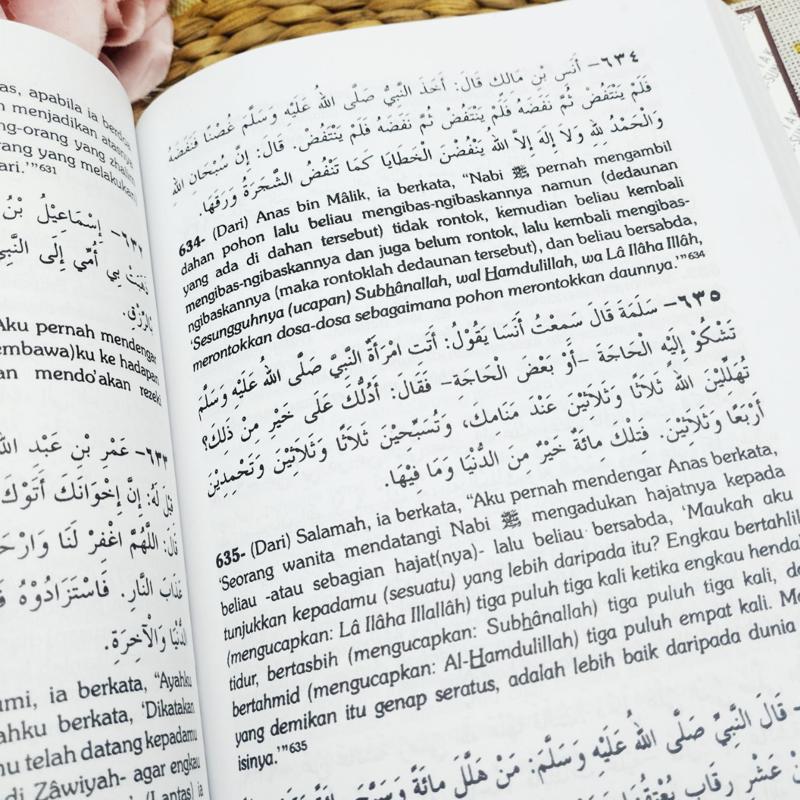 as, apabila ia berdoa
menjadikan atasnya
ng-orang yang zhalim
rang yang melakukan
ari.'"631
٦٣٢- إِسْمَاعِيْلُ بْنُ
ذَهَبَتْ بِي أُمِّي إِلَى النَّبِيِّ
بِالرِّزْقِ.
Aku pernah mendengar
embawa)ku ke hadapan
an mendo'akan rezeki
٦٣٣- عَمْرِ بْنِ عَبْدِ اللهِ
قِيْلَ لَهُ: إِنَّ إِخْوَانَكَ أَتَوْكَ
قَالَ: اللَّهُمَّ اغْفِرْ لَنَا وَارْحَ
عَذَابَ النَّارِ. فَاسْتَزَادُوْهُ
الدُّنْيَا وَالْآخِرَةِ.
umi, ia berkata, "Ayahku
ahku berkata, 'Dikatakan
mu telah datang kepadamu
di Zâwiyah- agar engkau
(Lantas) ia
٦٣٤- أَنَسِ بْنِ مَالِكٍ قَالَ: أَخَذَ النَّبِيُّ صَلَّى اللهُ عَلَيْهِ وَسَلَّمَ غُصْنًا فَنَفَضَهُ
فَلَمْ يَنْتَفِضْ ثُمَّ نَفَضَهُ فَلَمْ يَنْتَفِضْ ثُمَّ نَفَضَهُ فَلَمْ يَنْتَفِضْ. قَالَ: إِنَّ سُبْحَانَ اللهِ
وَالْحَمْدُ لِلهِ وَلاَ إِلَهَ إِلاَّ اللهُ يَنْفُضْنَ الْخَطَايَا كَمَا تَنْفُضُ الشَّجَرَةُ وَرَقَهَا.
634- (Dari) Anas bin Mâlik, ia berkata, "Nabi ﷺ pernah mengambil
dahan pohon lalu beliau mengibas-ngibaskannya namun (dedaunan
yang ada di dahan tersebut) tidak rontok, kemudian beliau kembali
mengibas-ngibaskannya dan juga belum rontok, lalu kembali mengibas-
ngibaskannya (maka rontoklah dedaunan tersebut), dan beliau bersabda,
'Sesungguhnya (ucapan) Subhânallah, wal Hamdulillah, wa Lâ Ilâha Illâh,
merontokkan dosa-dosa sebagaimana pohon merontokkan daunnya.'"634
٦٣٥- سَلَمَةَ قَالَ سَمِعْتُ أَنَسًا يَقُوْلُ: أَتَتِ امْرَأَةٌ النَّبِيَّ صَلَّى اللهُ عَلَيْهِ وَسَلَّمَ
تَشْكُوْ إِلَيْهِ الْحَاجَةَ -أَوْ بَعْضَ الْحَاجَةِ- فَقَالَ: أَدُلُّكَ عَلَى خَيْرٍ مِنْ ذَلِكَ؟
تُهَلِّلِيْنَ اللهَ ثَلاَثًا وَثَلاَثِيْنَ عِنْدَ مَنَامِكَ، وَتُسَبِّحِيْنَ ثَلاَثًا وَثَلاَثِيْنَ وَتَحْمِدِيْنَ
أَرْبَعًا وَثَلاَثِيْنَ. فَتِلْكَ مِائَةٌ خَيْرٌ مِنَ الدُّنْيَا وَمَا فِيْهَا.
635- (Dari) Salamah, ia berkata, "Aku pernah mendengar Anas berkata,
'Seorang wanita mendatangi Nabi ﷺ mengadukan hajatnya kepada
beliau -atau sebagian hajat(nya)- lalu beliau bersabda, 'Maukah aku
tunjukkan kepadamu (sesuatu) yang lebih daripada itu? Engkau bertahlil
(mengucapkan: Lâ Ilâha Illallâh) tiga puluh tiga kali ketika engkau henda
tidur, bertasbih (mengucapkan: Subhânallah) tiga puluh tiga kali, da
bertahmid (mengucapkan: Al-Hamdulillah) tiga puluh empat kali. Ma
yang demikan itu genap seratus, adalah lebih baik daripada dunia
isinya.'"635
قَالَ النَّبِيُّ صَلَّى اللهُ عَلَيْهِ وَسَلَّمَ: مَنْ هَلَّلَ مِائَةً
عَشْرِ رِقَابٍ